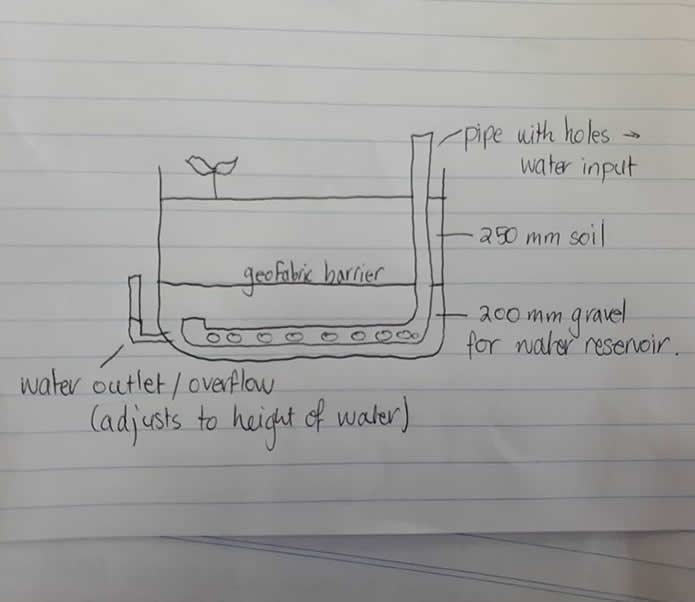 pipe with holes →
water input
250 mm soil
geofabric barrier
200 mm gravel
for water reservoir.
water outlet / overflow
(adjusts to height of water)